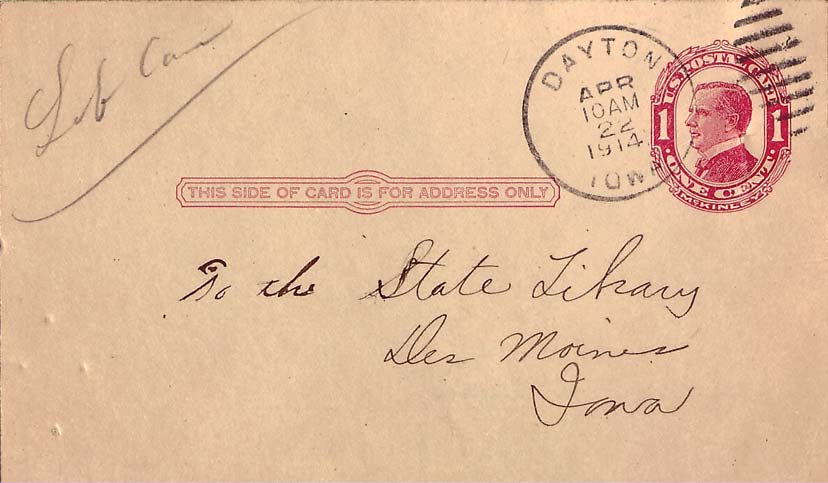 Lib Com
DAYTON
APR
10 AM
22
1914
IOWA
U.S. POSTAL CARD
1 1
ONE CENT
McKINLEY
THIS SIDE OF CARD IS FOR ADDRESS ONLY
To the State Library
Des Moines
Iowa